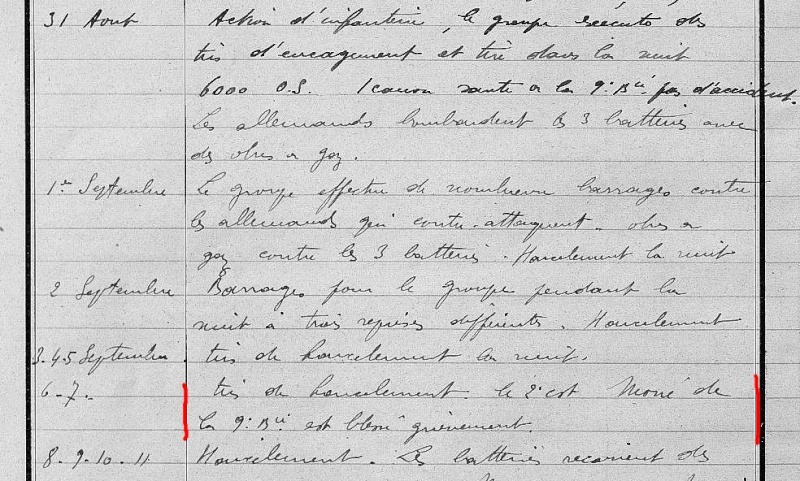 31 Aout Action d'infanterie, le groupe exécute des
tirs d'encagement et tire dans la nuit
6000 O.S. 1 canon saute a la 9e Bie pas d'accident.
Les allemands bombardent les 3 batteries avec
des obus a gaz.
1er Septembre Le groupe effectue de nombreux barrages contre
les allemands qui contre-attaquent. obus a
gaz contre les 3 batteries. Harcelement la nuit
2 Septembre Barrages pour le groupe pendant la
nuit à trois reprises differentes. Harcelement
3.4.5 Septembre. tirs de harcelement la nuit.
6-7. tirs de harcelement. le 2e cst de
la 9e Bie est blessé grièvement.
8.9.10.11 Harcelement. Les batteries recoivent des